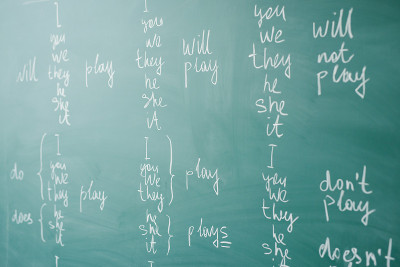 will
I
you
we
they
he
she
it
play
I
you
we
they
he
she
it
will
play
you
we
they
he
she
it
will
not
play
do
I
you
we
they
play
does
he
she
it
I
you
we
they
play
he
she
it
plays
I
you
we
they
he
she
it
don't
play
doesn't
I
I